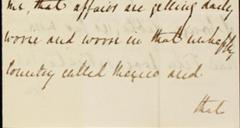 me, that affairs are getting daily
worse and worse in that unhappy
Country called Mexico and
that